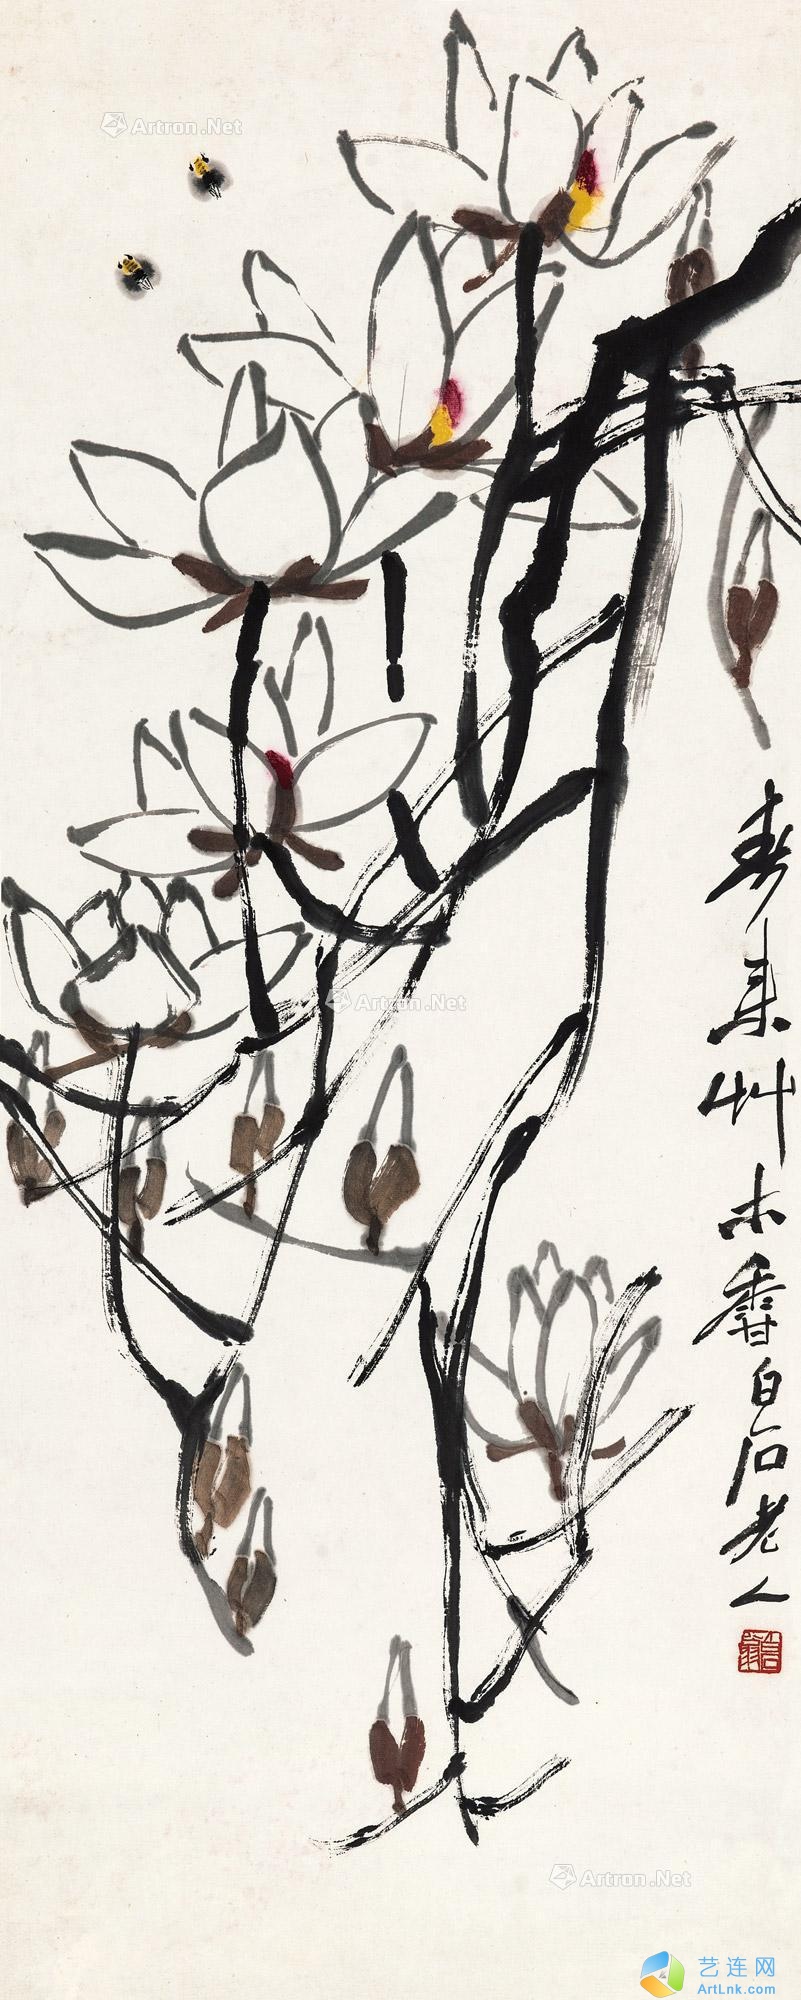 Artron.Net
春来艸木香白石老人
Artron.Net
Artron.Net
艺连网
ArtLnk.com